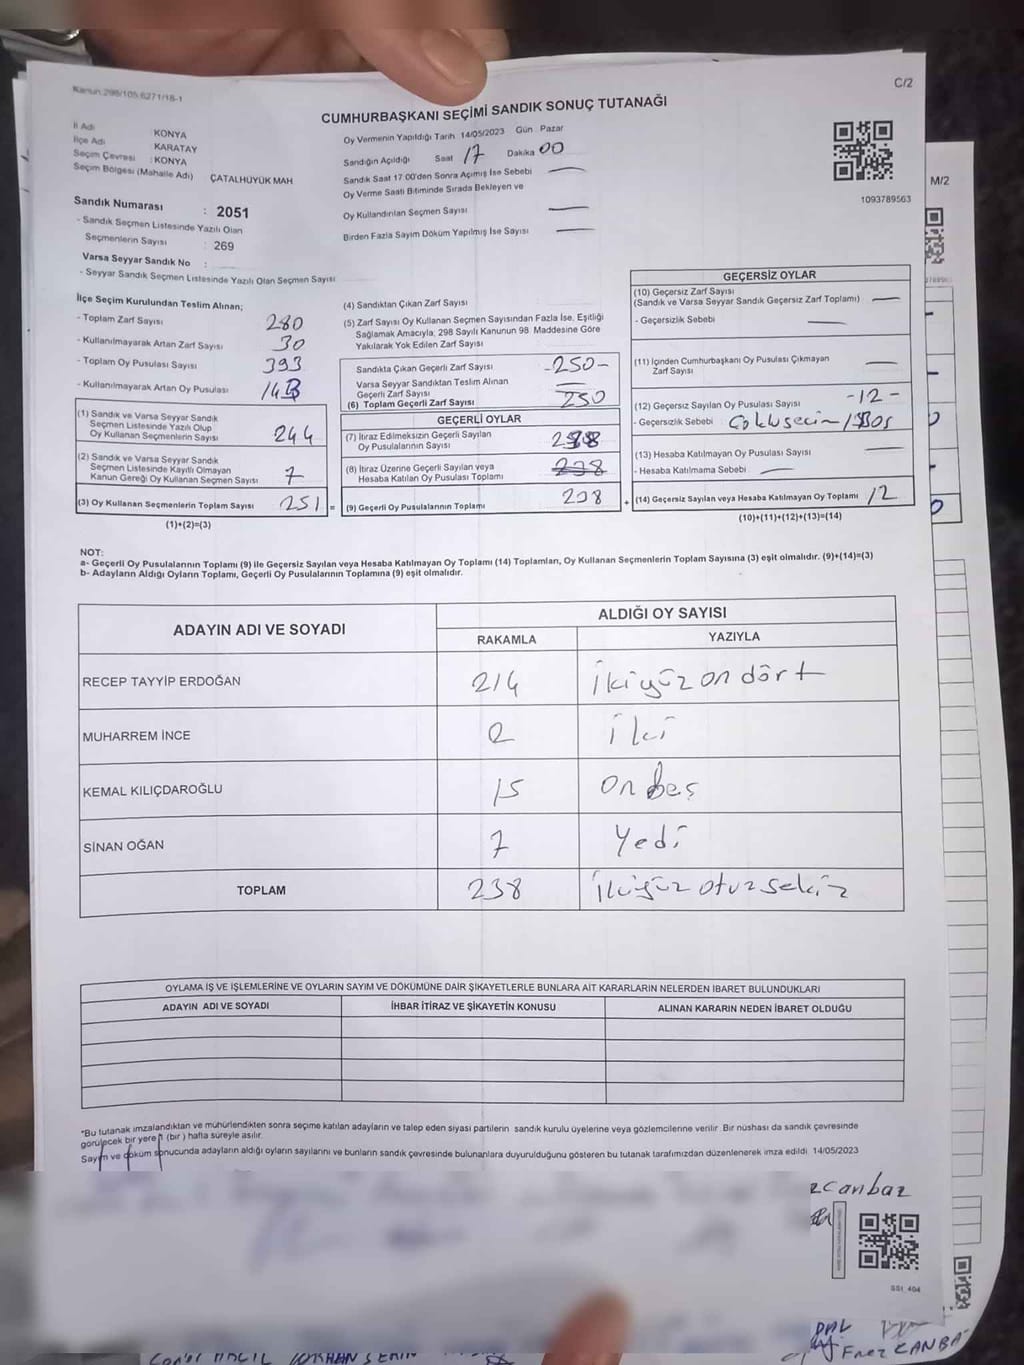 Kanun:298/105,6271/18-1
C/2
CUMHURBAŞKANI SEÇİMİ SANDIK SONUÇ TUTANAĞI
İl Adı KONYA
İlçe Adı KARATAY
Seçim Çevresi : KONYA
Seçim Bölgesi (Mahalle Adı) ÇATALHÜYÜK MAH
Oy Vermenin Yapıldığı Tarih 14/05/2023 Gün Pazar
Sandığın Açıldığı Saat 17 Dakika 00
Sandık Saat 17:00'den Sonra Açımış İse Sebebi —
Oy Verme Saati Bitiminde Sırada Bekleyen ve
Oy Kullandırılan Seçmen Sayısı —
Birden Fazla Sayım Döküm Yapılmış İse Sayısı —
1093789563
M/2
Sandık Numarası : 2051
- Sandık Seçmen Listesinde Yazılı Olan
Seçmenlerin Sayısı : 269
Varsa Seyyar Sandık No :
- Seyyar Sandık Seçmen Listesinde Yazılı Olan Seçmen Sayısı
İlçe Seçim Kurulundan Teslim Alınan;
- Toplam Zarf Sayısı 280
- Kullanılmayarak Artan Zarf Sayısı 30
- Toplam Oy Pusulası Sayısı 393
- Kullanılmayarak Artan Oy Pusulası
(1) Sandık ve Varsa Seyyar Sandık
Seçmen Listesinde Yazılı Olup
Oy Kullanan Seçmenlerin Sayısı 244
(2) Sandık ve Varsa Seyyar Sandık
Seçmen Listesinde Kayıtlı Olmayan
Kanun Gereği Oy Kullanan Seçmen Sayısı 7
(3) Oy Kullanan Seçmenlerin Toplam Sayısı 251 =
(1)+(2)=(3)
(4) Sandıktan Çıkan Zarf Sayısı
(5) Zarf Sayısı Oy Kullanan Seçmen Sayısından Fazla İse, Eşitliği
Sağlamak Amacıyla, 298 Sayılı Kanunun 98. Maddesine Göre
Yakılarak Yok Edilen Zarf Sayısı
Sandıkta Çıkan Geçerli Zarf Sayısı -250-
Varsa Seyyar Sandıktan Teslim Alınan
Geçerli Zarf Sayısı —
(6) Toplam Geçerli Zarf Sayısı 250
GEÇERLİ OYLAR
(7) İtiraz Edilmeksizin Geçerli Sayılan
Oy Pusulasının Sayısı
(8) İtiraz Üzerine Geçerli Sayılan veya
Hesaba Katılan Oy Pusulası Toplamı 238
(9) Geçerli Oy Pusulalarının Toplamı 238 +
GEÇERSİZ OYLAR
(10) Geçersiz Zarf Sayısı
(Sandık ve Varsa Seyyar Sandık Geçersiz Zarf Toplamı) —
- Geçersizlik Sebebi —
(11) İçinden Cumhurbaşkanı Oy Pusulası Çıkmayan
Zarf Sayısı —
(12) Geçersiz Sayılan Oy Pusulası Sayısı -12-
- Geçersizlik Sebebi : Çoklu seçim / Boş
(13) Hesaba Katılmayan Oy Pusulası Sayısı —
- Hesaba Katılmama Sebebi —
(14) Geçersiz Sayılan veya Hesaba Katılmayan Oy Toplamı 12
(10)+(11)+(12)+(13)=(14)
NOT:
a- Geçerli Oy Pusulalarının Toplamı (9) ile Geçersiz Sayılan veya Hesaba Katılmayan Oy Toplamı (14) Toplamları, Oy Kullanan Seçmenlerin Toplam Sayısına (3) eşit olmalıdır. (9)+(14)=(3)
b- Adayların Aldığı Oyların Toplamı, Geçerli Oy Pusulalarının Toplamına (9) eşit olmalıdır.
ADAYIN ADI VE SOYADI
ALDIĞI OY SAYISI
RAKAMLA YAZIYLA
RECEP TAYYİP ERDOĞAN 214 İkiyüz on dört
MUHARREM İNCE 2 İki
KEMAL KILIÇDAROĞLU 15 on beş
SİNAN OĞAN 7 Yedi
TOPLAM 238 İkiyüz otuz sekiz
OYLAMA İŞ VE İŞLEMLERİNE VE OYLARIN SAYIM VE DÖKÜMÜNE DAİR ŞİKAYETLERLE BUNLARA AİT KARARLARIN NELERDEN İBARET BULUNDUKLARI
ADAYIN ADI VE SOYADI İHBAR İTİRAZ VE ŞİKAYETİN KONUSU ALINAN KARARIN NEDEN İBARET OLDUĞU
*Bu tutanak imzalandıktan ve mühürlendikten sonra seçime katılan adayların ve talep eden siyasi partilerin sandık kurulu üyelerine veya gözlemcilerine verilir. Bir nüshası da sandık çevresinde
görülecek bir yere 1 (bir) hafta süreyle asılır.
Sayım ve döküm sonucunda adayların aldığı oyların sayılarını ve bunların sandık çevresinde bulunanlara duyurulduğunu gösteren bu tutanak tarafımızdan düzenlenerek imza edildi. 14/05/2023
zcanbaz
SSI_404